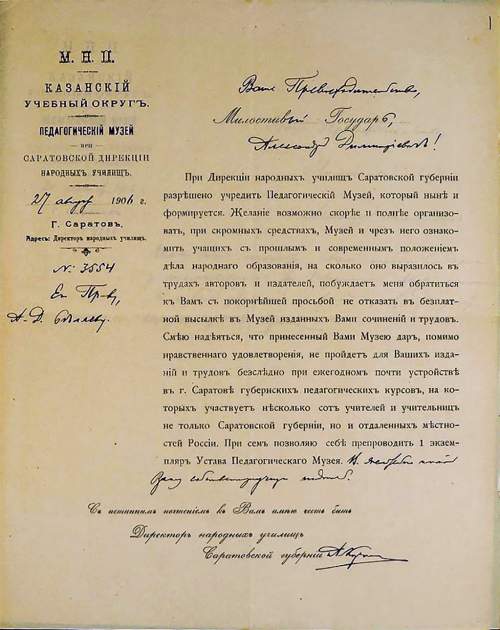 М. Н. П.
КАЗАНСКІЙ
УЧЕБНЫЙ ОКРУГЪ.
ПЕДАГОГИЧЕСКІЙ МУЗЕЙ
ПРИ
САРАТОВСКОЙ ДИРЕКЦІИ
НАРОДНЫХЪ УЧИЛИЩЪ.
27 1906 г.
Г. Саратовъ.
Адресъ: Директоръ народныхъ училищъ.
№ 3554
Ег. Прев.
А. Д.
Ваше Превосходительство,
Милостивый Государь,
Александръ Димитріевичъ!
При Дирекціи народныхъ училищъ Саратовской губерніи
разрѣшено учредить Педагогическій Музей, который нынѣ и
формируется. Желаніе возможно скорѣе и полнѣе организо-
вать, при скромныхъ средствахъ, Музей и чрезъ него ознако-
мить учащихъ съ прошлымъ и современнымъ положеніемъ
дѣла народнаго образованія, на сколько оно выразилось въ
трудахъ авторовъ и издателей, побуждаетъ меня обратиться
къ Вамъ съ покорнѣйшей просьбой не отказать въ безплат-
ной высылкѣ въ Музей изданныхъ Вами сочиненій и трудовъ.
Смѣю надѣяться, что принесенный Вами Музею даръ, помимо
нравственнаго удовлетворенія, не пройдетъ для Вашихъ изда-
ній и трудовъ безслѣдно при ежегодномъ почти устройствѣ
въ г. Саратовѣ губернскихъ педагогическихъ курсовъ, на ко-
торыхъ участвуетъ нѣсколько сотъ учителей и учительницъ
не только Саратовской губерніи, но и отдаленныхъ мѣстно-
стей Россіи. При семъ позволяю себѣ препроводить 1 экзем-
пляръ Устава Педагогическаго Музея.
Съ истиннымъ почтеніемъ къ Вамъ имѣю честь быть
Директоръ народныхъ училищъ
Саратовской губерніи